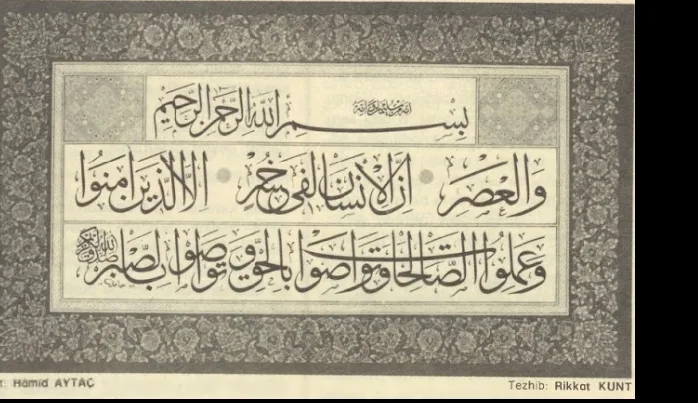 بِسْمِ اللهِ الرَّحْمٰنِ الرَّحِيْمِ
وَالْعَصْرِ اِنَّ الْاِنْسَانَ لَفِى خُسْرٍ اِلَّا الَّذِينَ اٰمَنُوا
وَعَمِلُوا الصَّالِحَاتِ وَتَوَاصَوْا بِالْحَقِّ وَتَوَاصَوْا بِالصَّبْرِ
t: Hamid AYTAÇ
Tezhib: Rikkat KUNT